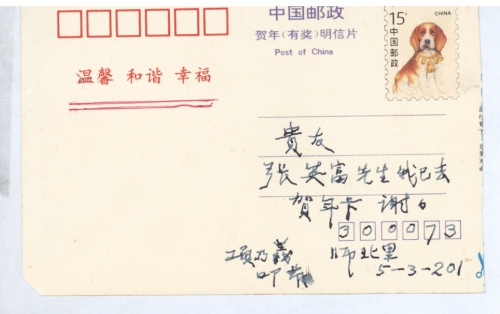 中国邮政
贺年（有奖）明信片
Post of China
15分
CHINA
中国邮政
温馨 和谐 幸福
貴友
张英富先生我已去
賀年卡 谢
300073
师北里
5-3-201
项乃義